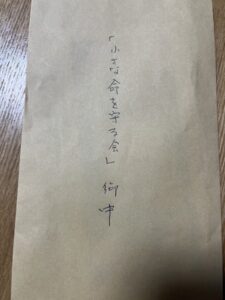 「小さな命を守る会」御中